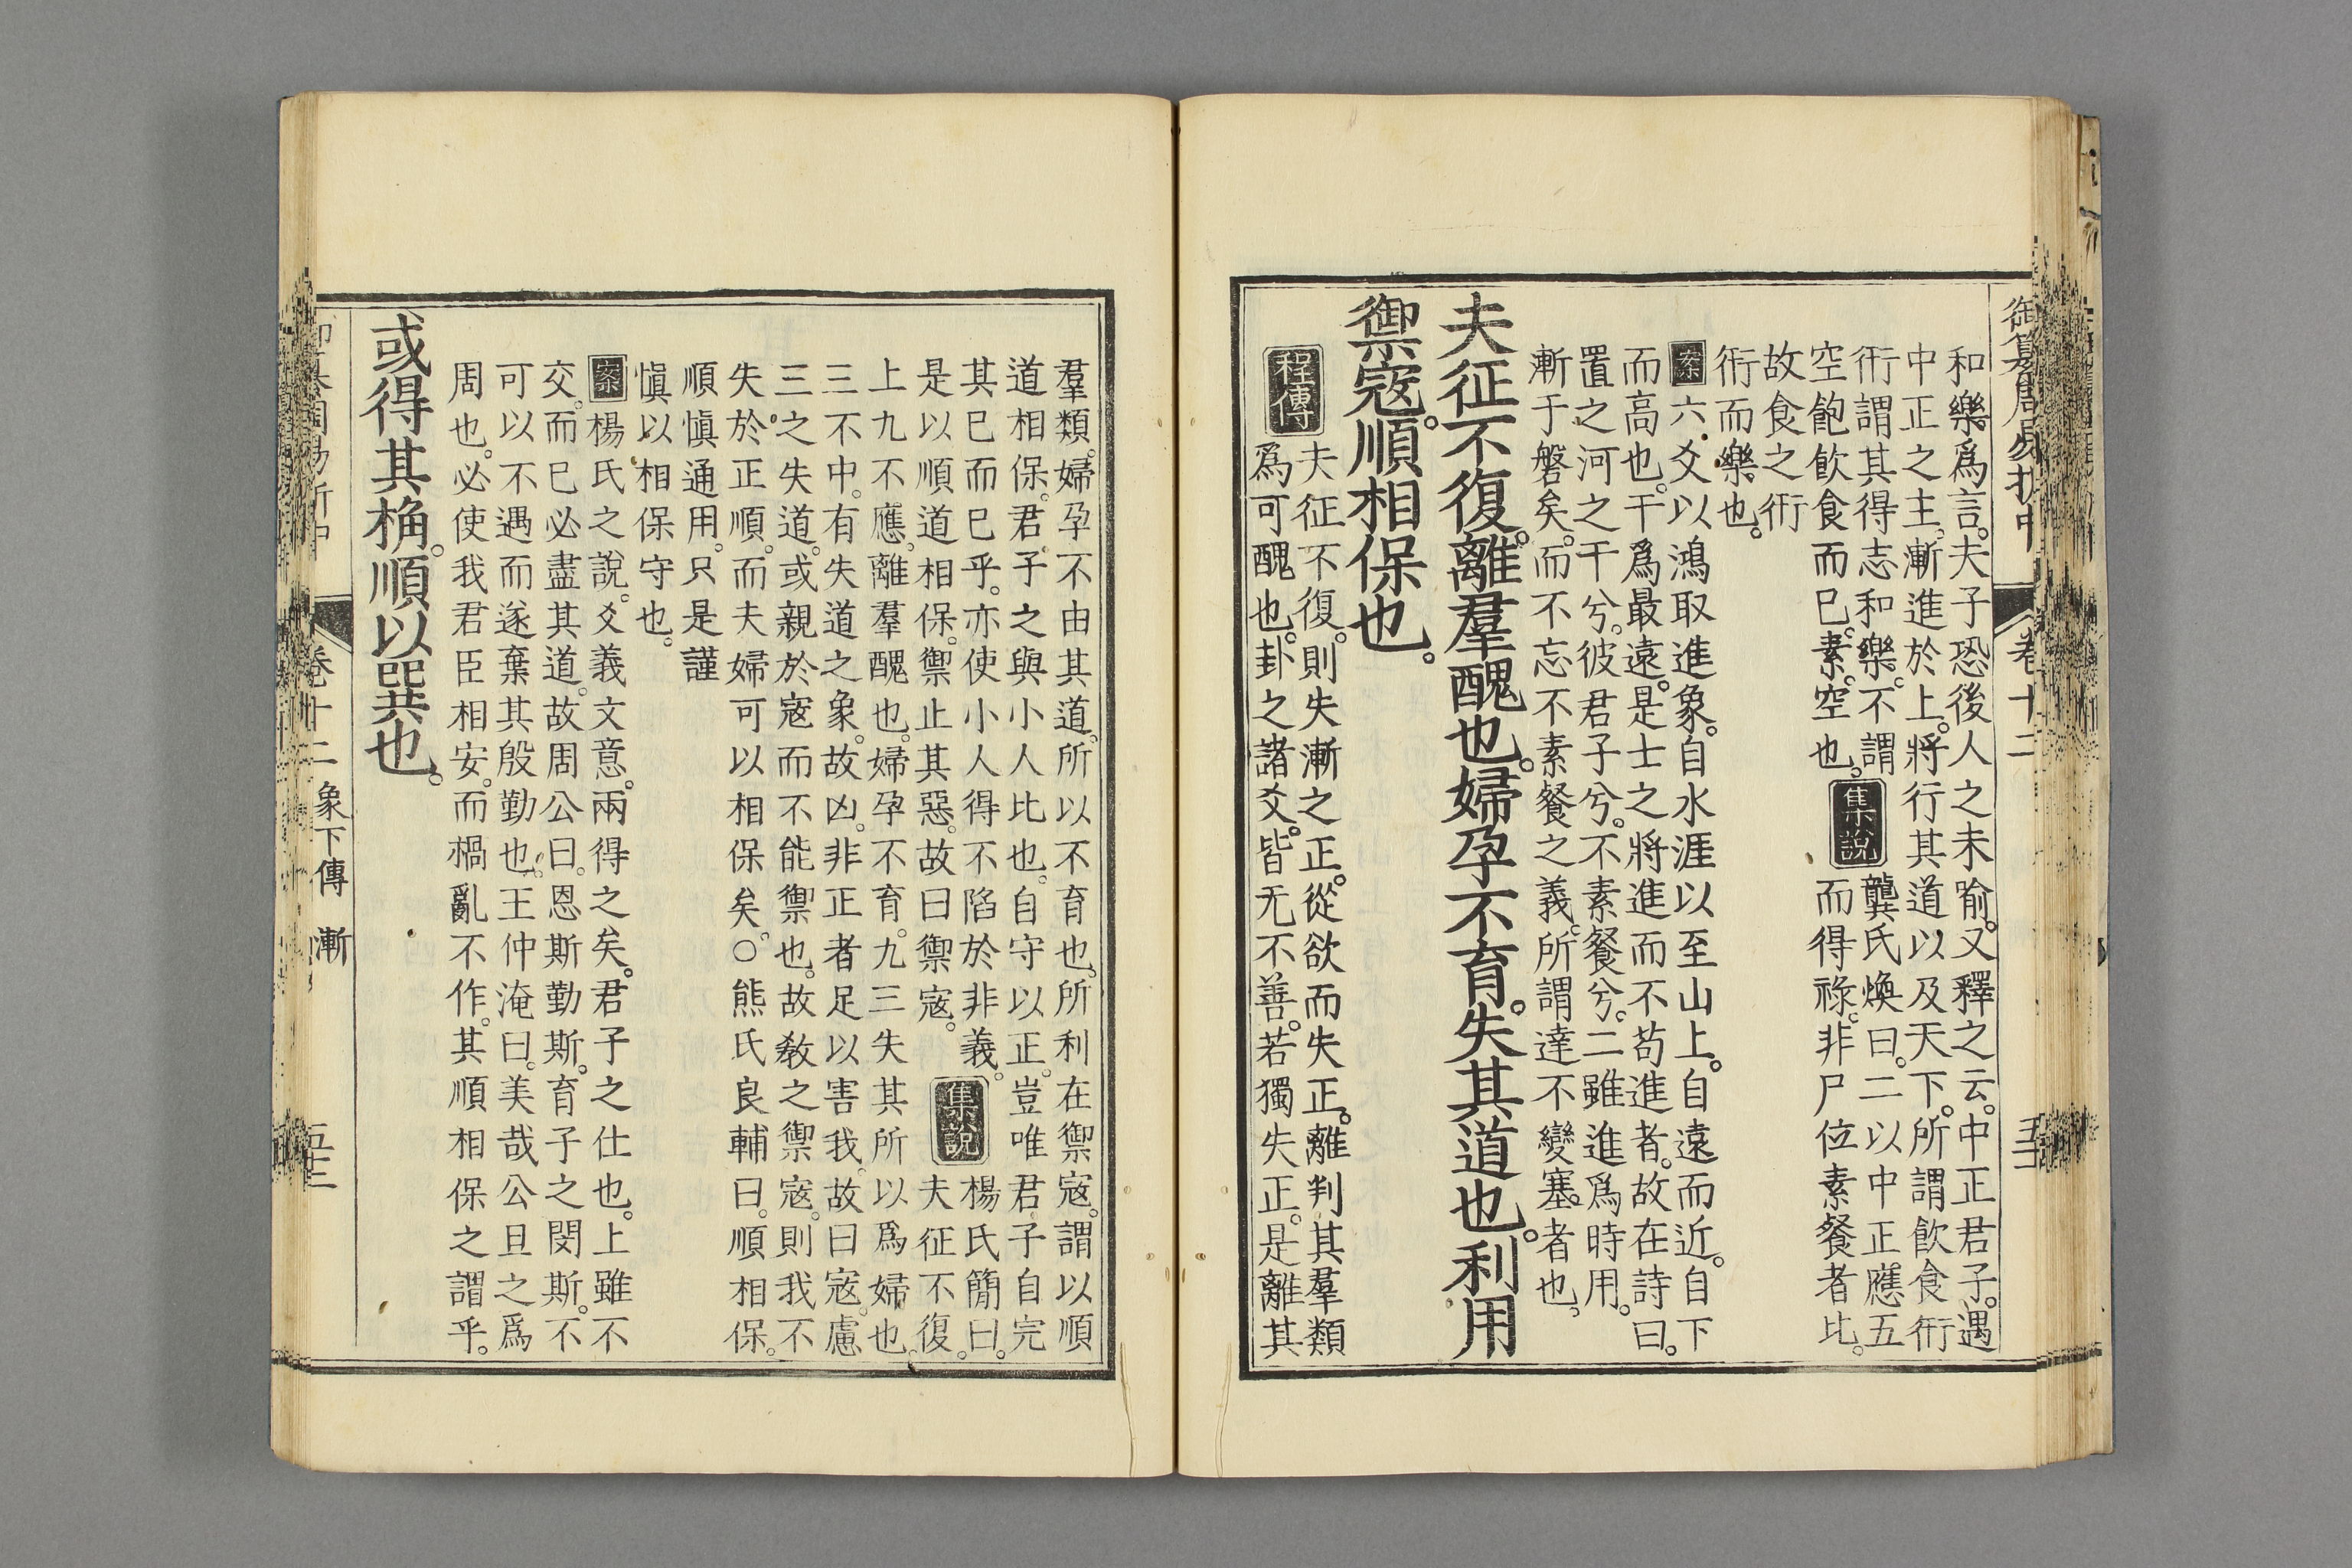 御纂周易折中 卷十二
和樂爲言。夫子恐後人之未喻。又釋之云。中正君子。遇
中正之主。漸進於上。將行其道以及天下。所謂飲食衎
衎。謂其得志和樂。不謂
空飽飲食而已。素。空也。
集說
龔氏煥曰。二以中正應五
而得祿。非尸位素餐者比。
故食之衎
衎而樂也。
案六爻以鴻取進象。自水涯以至山上。自遠而近。自下
而高也。干爲最遠。是士之將進而不苟進者。故在詩曰。
置之河之干兮。彼君子兮。不素餐兮。二雖進爲時用。
漸于磐矣。而不忘不素餐之義。所謂達不變塞者也。
夫征不復。離羣醜也。婦孕不育。失其道也。利用
禦寇。順相保也。
程傳
夫征不復。則失漸之正。從欲而失正。離判其羣類
爲可醜也。卦之諸爻。皆无不善。若獨失正。是離其
羣類。婦孕不由其道。所以不育也。所利在禦寇。謂以順
道相保。君子之與小人比也。自守以正。豈唯君子自完
其已而已乎。亦使小人得不陷於非義。
是以順道相保。禦止其惡。故曰禦寇。
集說
楊氏簡曰。
夫征不復。
上九不應。離羣醜也。婦孕不育。九三失其所以爲婦也。
三不中。有失道之象。故凶。非正者足以害我。故曰寇。慮
三之失道。或親於寇而不能禦也。故敎之禦寇。則我不
失於正順。而夫婦可以相保矣。○熊氏良輔曰。順相保。
順愼通用。只是謹
愼以相保守也。
案楊氏之說。爻義文意。兩得之矣。君子之仕也。上雖不
交。而已必盡其道。故周公曰。恩斯勤斯。育子之閔斯。不
可以不遇而遂棄其殷勤也。王仲淹曰。美哉公旦之爲
周也。必使我君臣相安。而禍亂不作。其順相保之謂乎。
或得其桷。順以巽也。
卷十二 象下傳 漸